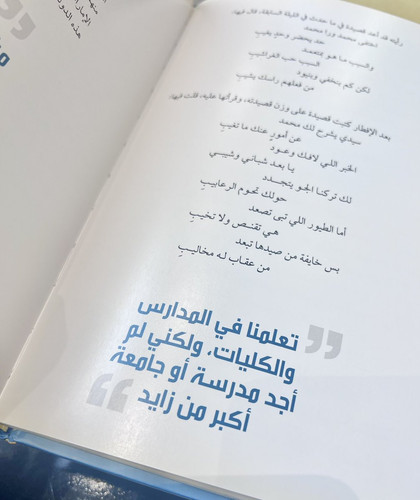 رأيته قد أعد قصيدة في ما حدث في الليلة السابقة، قال فيها:
اختفى محمد ورا محمد
حد يحضر وحدٍ يغيب
والسبب ما هو بتعمد
السبب
لكن كم بتختفي وبتبود
من فعلهم راسك يشيب
بعد الإفطار كتبت قصيدة على وزن قصيدته، وقرأتها عليه، قلت فيها:
سيدي يشرح لك محمد
عن أمورٍ عنك ما تغيب
الخبر اللي لافك وعود
يا بعد شباني وشيبي
لك تركنا الجو يتجدد
حولك تحوم الرعابيب
أما الطيور اللي تبى تصعد
هي تقنص ولا تخيب
بس خايفة من صيدها تبعد
من عقاب له مخاليب
تعلمنا في المدارس
والكليات، ولكني لم
أجد مدرسة أو جامعة
أكبر من زايد